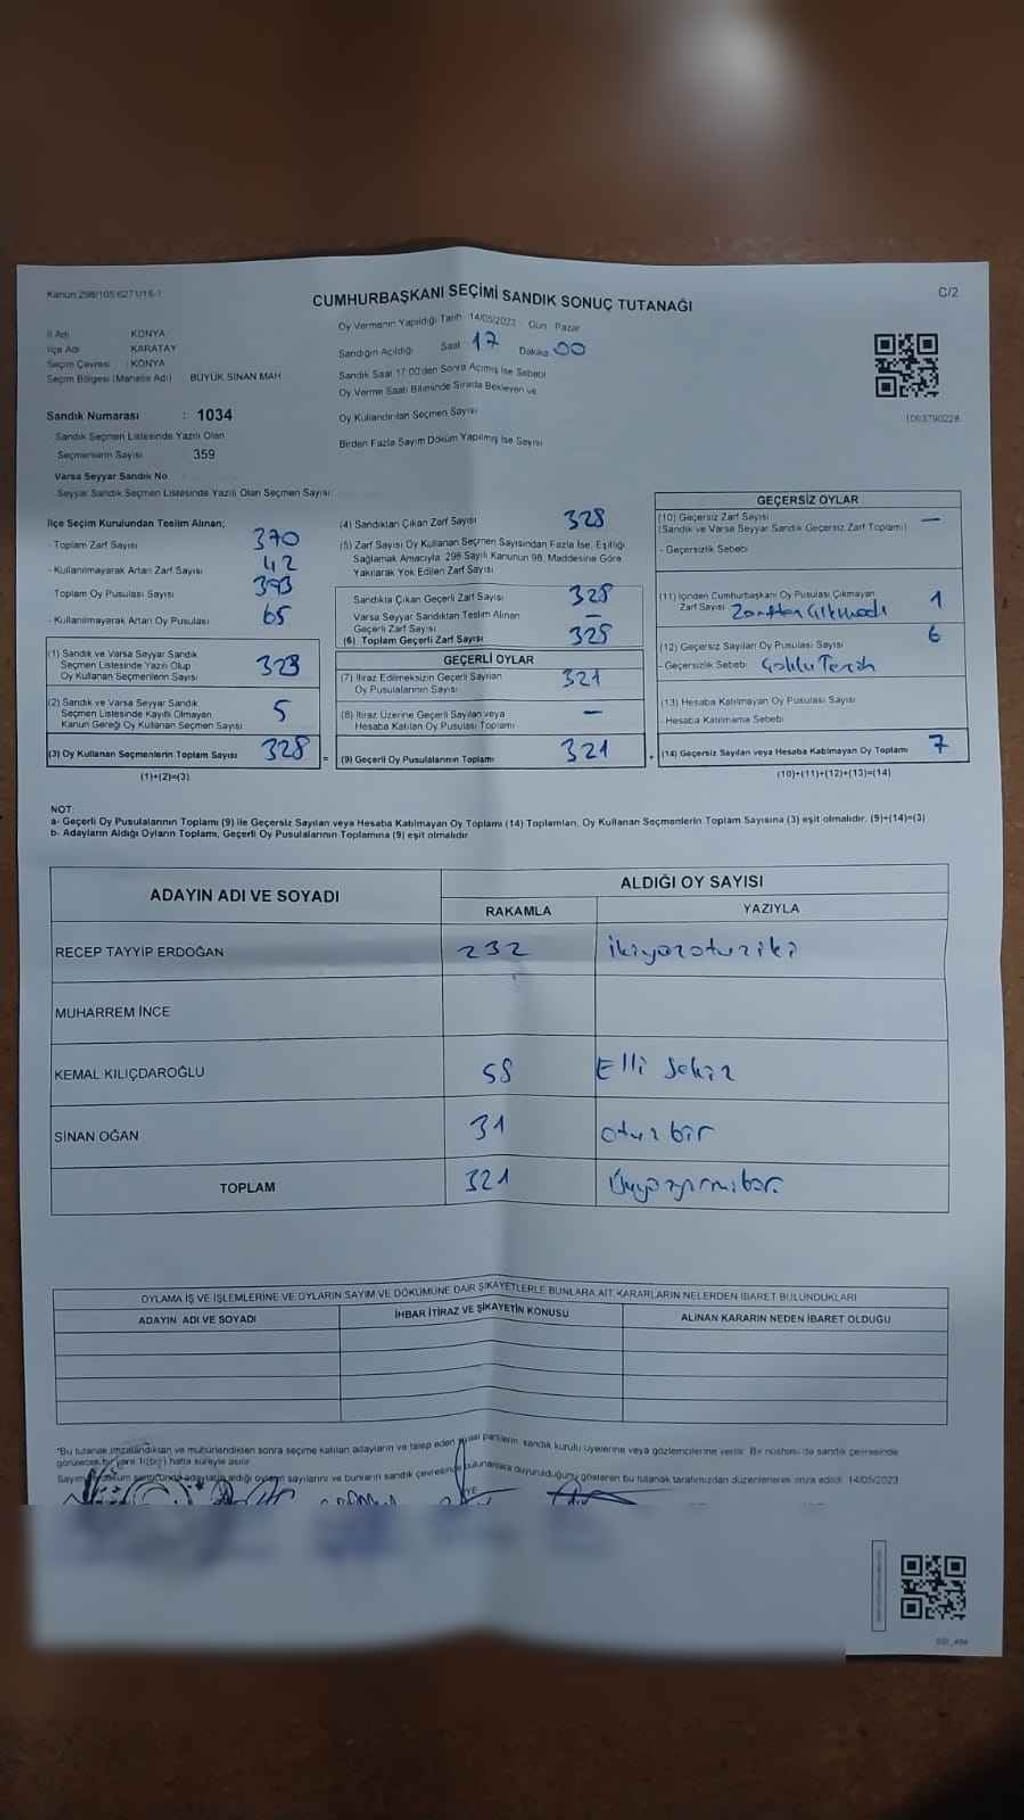 Kanun 298/105 6271/16-1
C/2
CUMHURBAŞKANI SEÇİMİ SANDIK SONUÇ TUTANAĞI
İl Adı KONYA
İlçe Adı KARATAY
Seçim Çevresi : KONYA
Seçim Bölgesi (Mahalle Adı) BÜYÜK SİNAN MAH
Oy Vermenin Yapıldığı Tarih 14/05/2023 Gün Pazar
Sandığın Açıldığı Saat 17 Dakika 00
Sandık Saat 17 00'den Sonra Açılmış İse Sebebi
Oy Verme Saati Bitiminde Sırada Bekleyen ve
Oy Kullandırılan Seçmen Sayısı
Birden Fazla Sayım Döküm Yapılmış İse Sayısı
Sandık Numarası : 1034
Sandık Seçmen Listesinde Yazılı Olan
Seçmenlerin Sayısı 359
Varsa Seyyar Sandık No
Seyyar Sandık Seçmen Listesinde Yazılı Olan Seçmen Sayısı:
İlçe Seçim Kurulundan Teslim Alınan;
- Toplam Zarf Sayısı 370
- Kullanılmayarak Artan Zarf Sayısı 42
Toplam Oy Pusulası Sayısı 393
- Kullanılmayarak Artan Oy Pusulası 65
(1) Sandık ve Varsa Seyyar Sandık
Seçmen Listesinde Yazılı Olup
Oy Kullanan Seçmenlerin Sayısı 323
(2) Sandık ve Varsa Seyyar Sandık
Seçmen Listesinde Kayıtlı Olmayan
Kanun Gereği Oy Kullanan Seçmen Sayısı 5
(3) Oy Kullanan Seçmenlerin Toplam Sayısı 328
(1)+(2)=(3)
(4) Sandıktan Çıkan Zarf Sayısı 328
(5) Zarf Sayısı Oy Kullanan Seçmen Sayısından Fazla İse, Eşitliği
Sağlamak Amacıyla, 298 Sayılı Kanunun 98. Maddesine Göre
Yakılarak Yok Edilen Zarf Sayısı
Sandıkta Çıkan Geçerli Zarf Sayısı 328
Varsa Seyyar Sandıktan Teslim Alınan
Geçerli Zarf Sayısı –
(6) Toplam Geçerli Zarf Sayısı 328
GEÇERLİ OYLAR
(7) İtiraz Edilmeksizin Geçerli Sayılan
Oy Pusulalarının Sayısı 321
(8) İtiraz Üzerine Geçerli Sayılan veya
Hesaba Katılan Oy Pusulası Toplamı –
(9) Geçerli Oy Pusulalarının Toplamı 321
GEÇERSİZ OYLAR
(10) Geçersiz Zarf Sayısı –
(Sandık ve Varsa Seyyar Sandık Geçersiz Zarf Toplamı)
- Geçersizlik Sebebi
(11) İçinden Cumhurbaşkanı Oy Pusulası Çıkmayan
Zarf Sayısı Zarftan Çıkmadı 1
(12) Geçersiz Sayılan Oy Pusulası Sayısı 6
- Geçersizlik Sebebi Çoklu Tercih
(13) Hesaba Katılmayan Oy Pusulası Sayısı
- Hesaba Katılmama Sebebi
(14) Geçersiz Sayılan veya Hesaba Katılmayan Oy Toplamı 7
(10)+(11)+(12)+(13)=(14)
NOT:
a- Geçerli Oy Pusulalarının Toplamı (9) ile Geçersiz Sayılan veya Hesaba Katılmayan Oy Toplamı (14) Toplamları, Oy Kullanan Seçmenlerin Toplam Sayısına (3) eşit olmalıdır. (9)+(14)=(3)
b- Adayların Aldığı Oyların Toplamı, Geçerli Oy Pusulalarının Toplamına (9) eşit olmalıdır
ADAYIN ADI VE SOYADI
ALDIĞI OY SAYISI
RAKAMLA YAZIYLA
RECEP TAYYİP ERDOĞAN 232 ikiyüzotuziki
MUHARREM İNCE
KEMAL KILIÇDAROĞLU 58 Elli Sekiz
SİNAN OĞAN 31 otuzbir
TOPLAM 321 Üçyüzyirmibir
OYLAMA İŞ VE İŞLEMLERİNE VE OYLARIN SAYIM VE DÖKÜMÜNE DAİR ŞİKAYETLERLE BUNLARA AİT KARARLARIN NELERDEN İBARET BULUNDUKLARI
ADAYIN ADI VE SOYADI
İHBAR İTİRAZ VE ŞİKAYETİN KONUSU
ALINAN KARARIN NEDEN İBARET OLDUĞU
*Bu tutanak imzalandıktan ve mühürlendikten sonra seçime katılan adayların ve talep eden siyasi partilerin sandık kurulu üyelerine veya gözlemcilerine verilir. Bir nüshası da sandık çevresinde
hafta süreyle asılır
oyların sayılarını ve bunların sandık çevresinde duyurulduğunu gösteren bu tutanak tarafımızdan düzenlenerek imza edildi. 14/05/2023